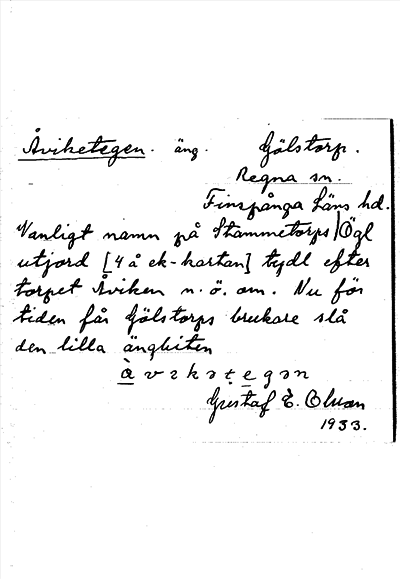 Åviketegen. äng. Gölstorp.
Regna sn.
Finspånga Läns hd.
Vanligt namn på Stammetorps Ögl
utjord [4 å ek-kartan] tydl efter
torpet Åviken n.ö. om. Nu för
tiden får Gölstorps brukare slå
den lilla ängbiten
Gustaf E. Olsson
1933.